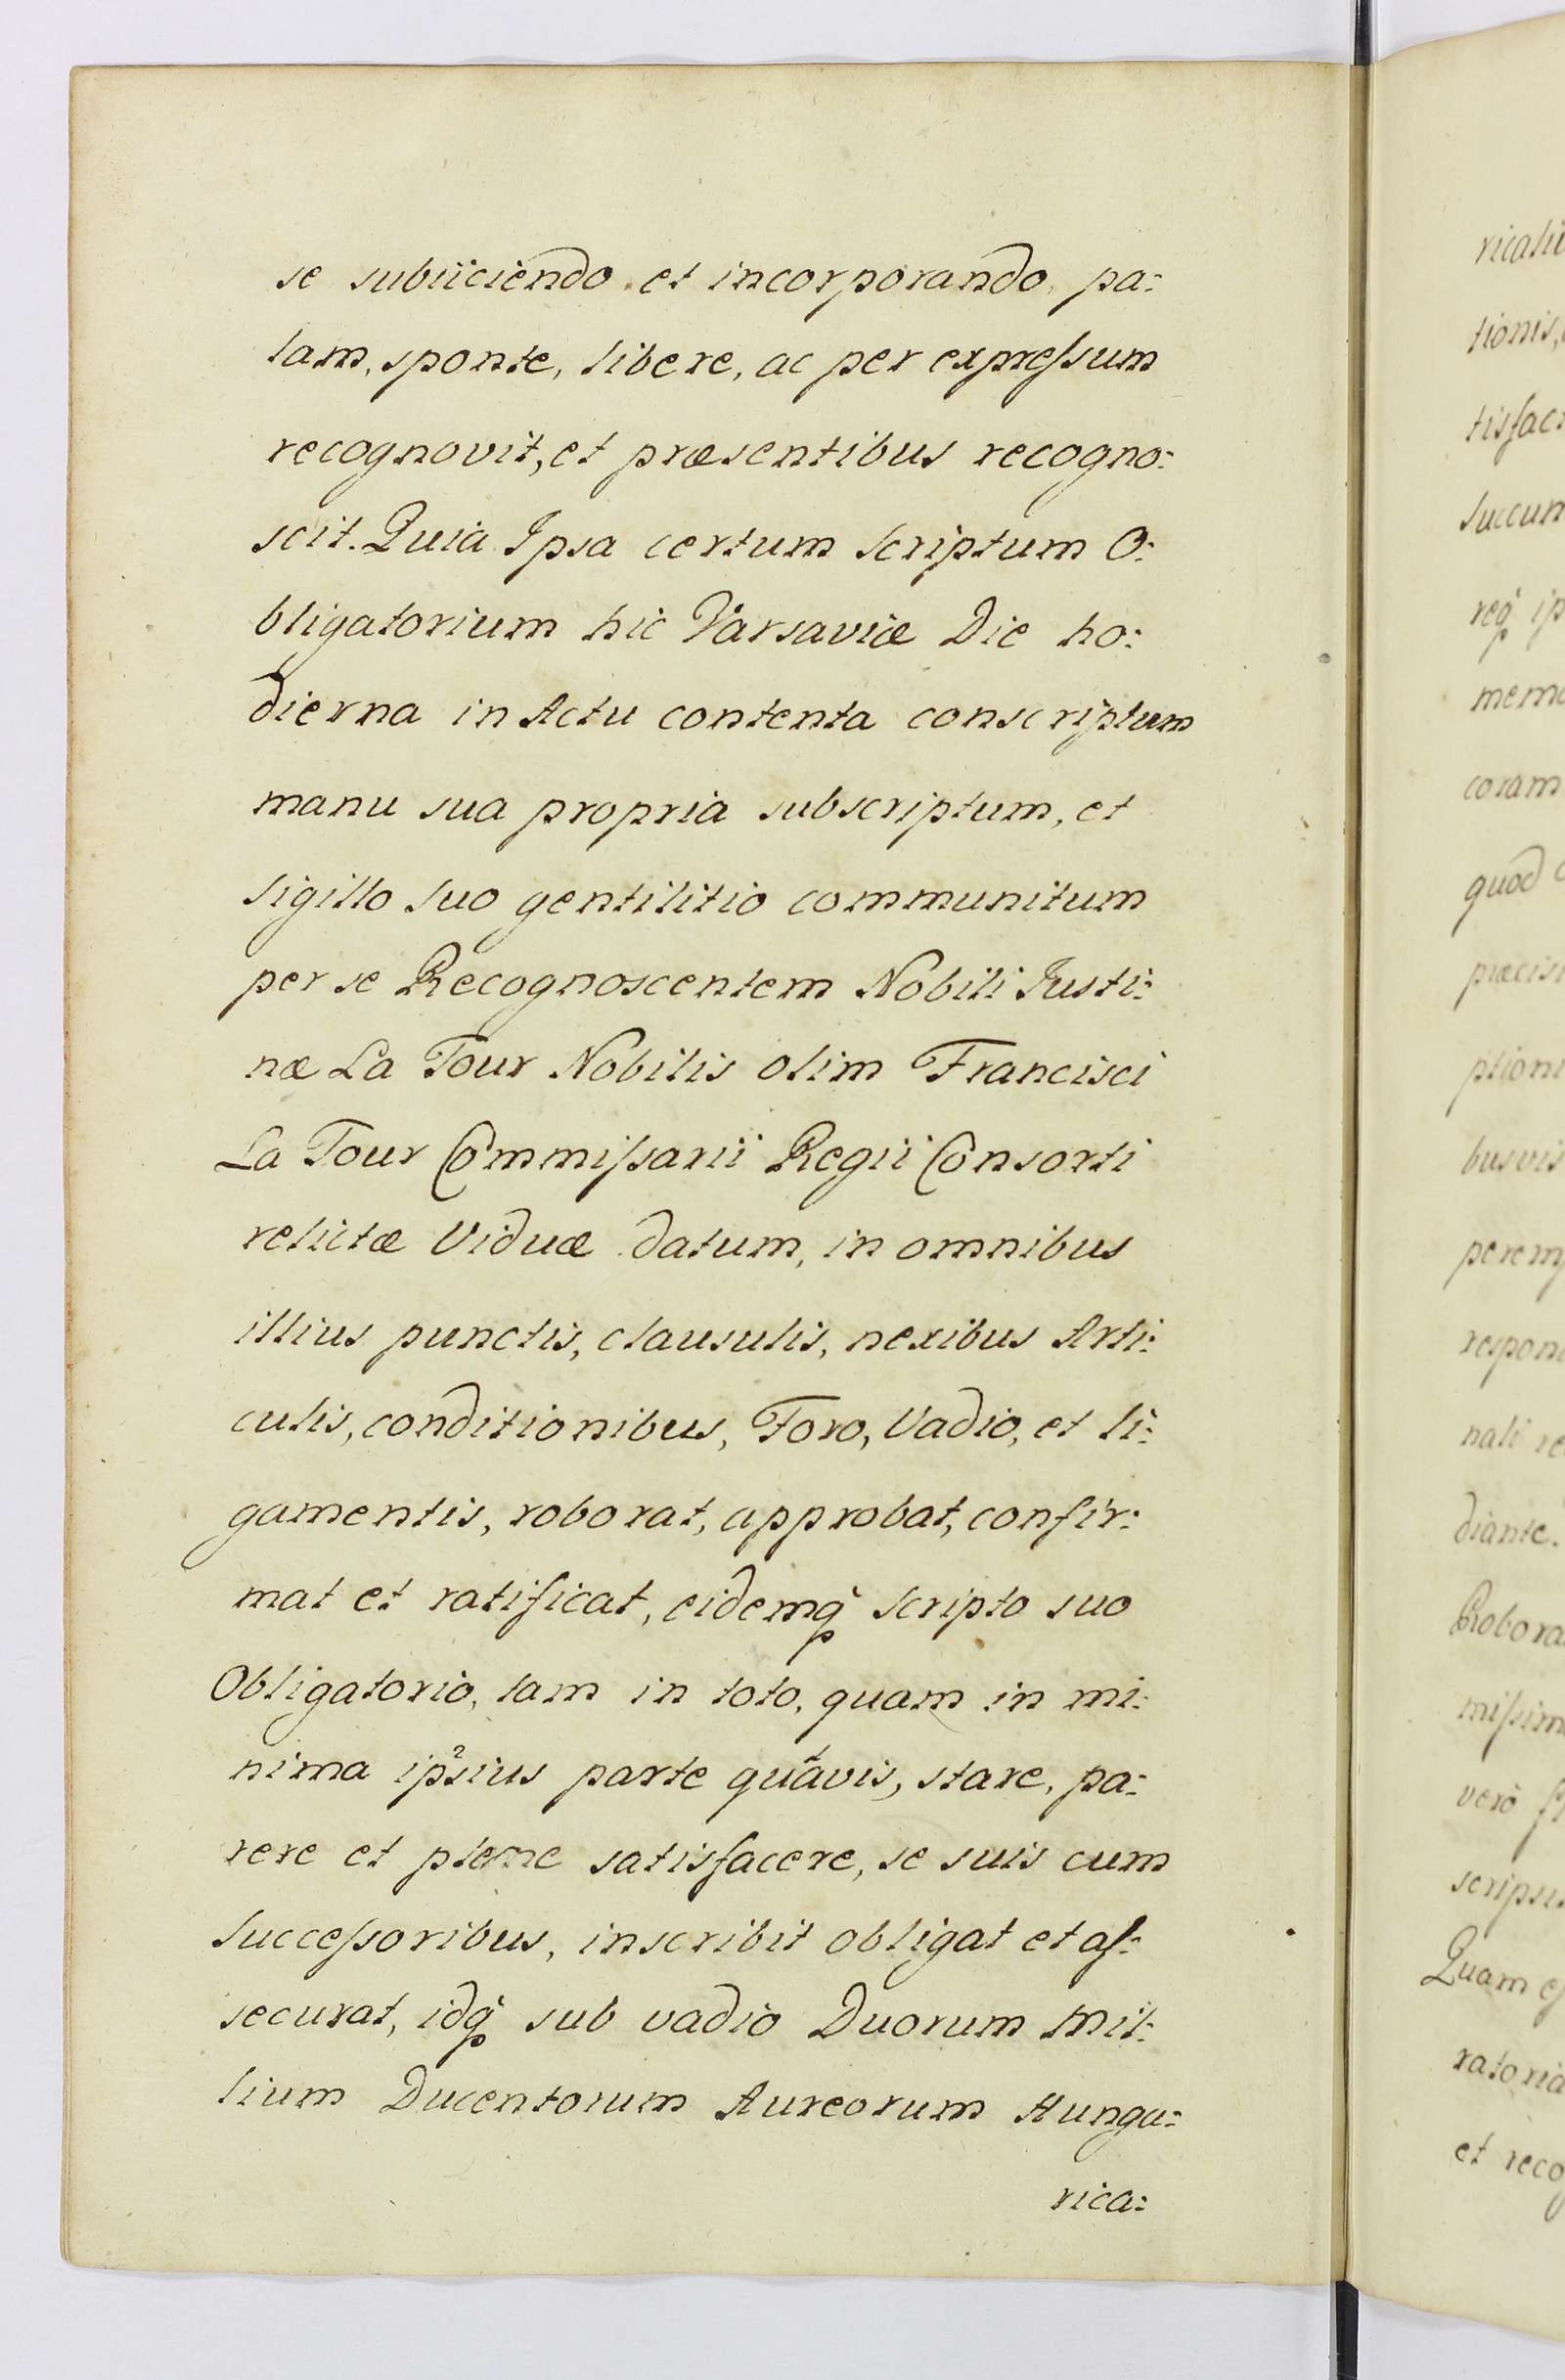 se subiiciendo et incorporando, pa:
lam, sponte, libere, ac per expreſsum
recognovit, et præsentibus recogno:
scit. Quia Ipsa certum Scriptum O:
bligatorium hic Varsaviæ Die ho:
dierna in Actu contenta conscriptum
manu sua propria subscriptum, et
Sigillo Suo gentilitio communitum
per se Recognoscentem Nobili Justi:
næ La Tour Nobilis olim Francisci
La Tour Commiſsarii Regii Consorti
relictæ Viduæ datum, in omnibus
illius punctis, clausulis, nexibus Arti:
culis, conditionibus, Foro, Vadio, et li:
gamentis, roborat, approbat, confir:
mat et ratificat, eidemq̀ Scripto suo
Obligatorio, tam in toto, quam in mi:
nima ipsius parte quavis, stare, pa:
rere et plene satisfacere, se suis cum
Succeſsoribus, inscribit obligat et aſ:
securat, idq̀ sub vadio Duorum Mil:
lium Ducentorum Aureorum Hunga:
rica:
ricali
tionis,
tisfac:
Succum
req̀ ip
memo
coram
quod
præcis
ptioni
busvis
perem
respon
nali re
diante.
Robora
miſsim
verò
scripsi
Quam
ratoria
et recog